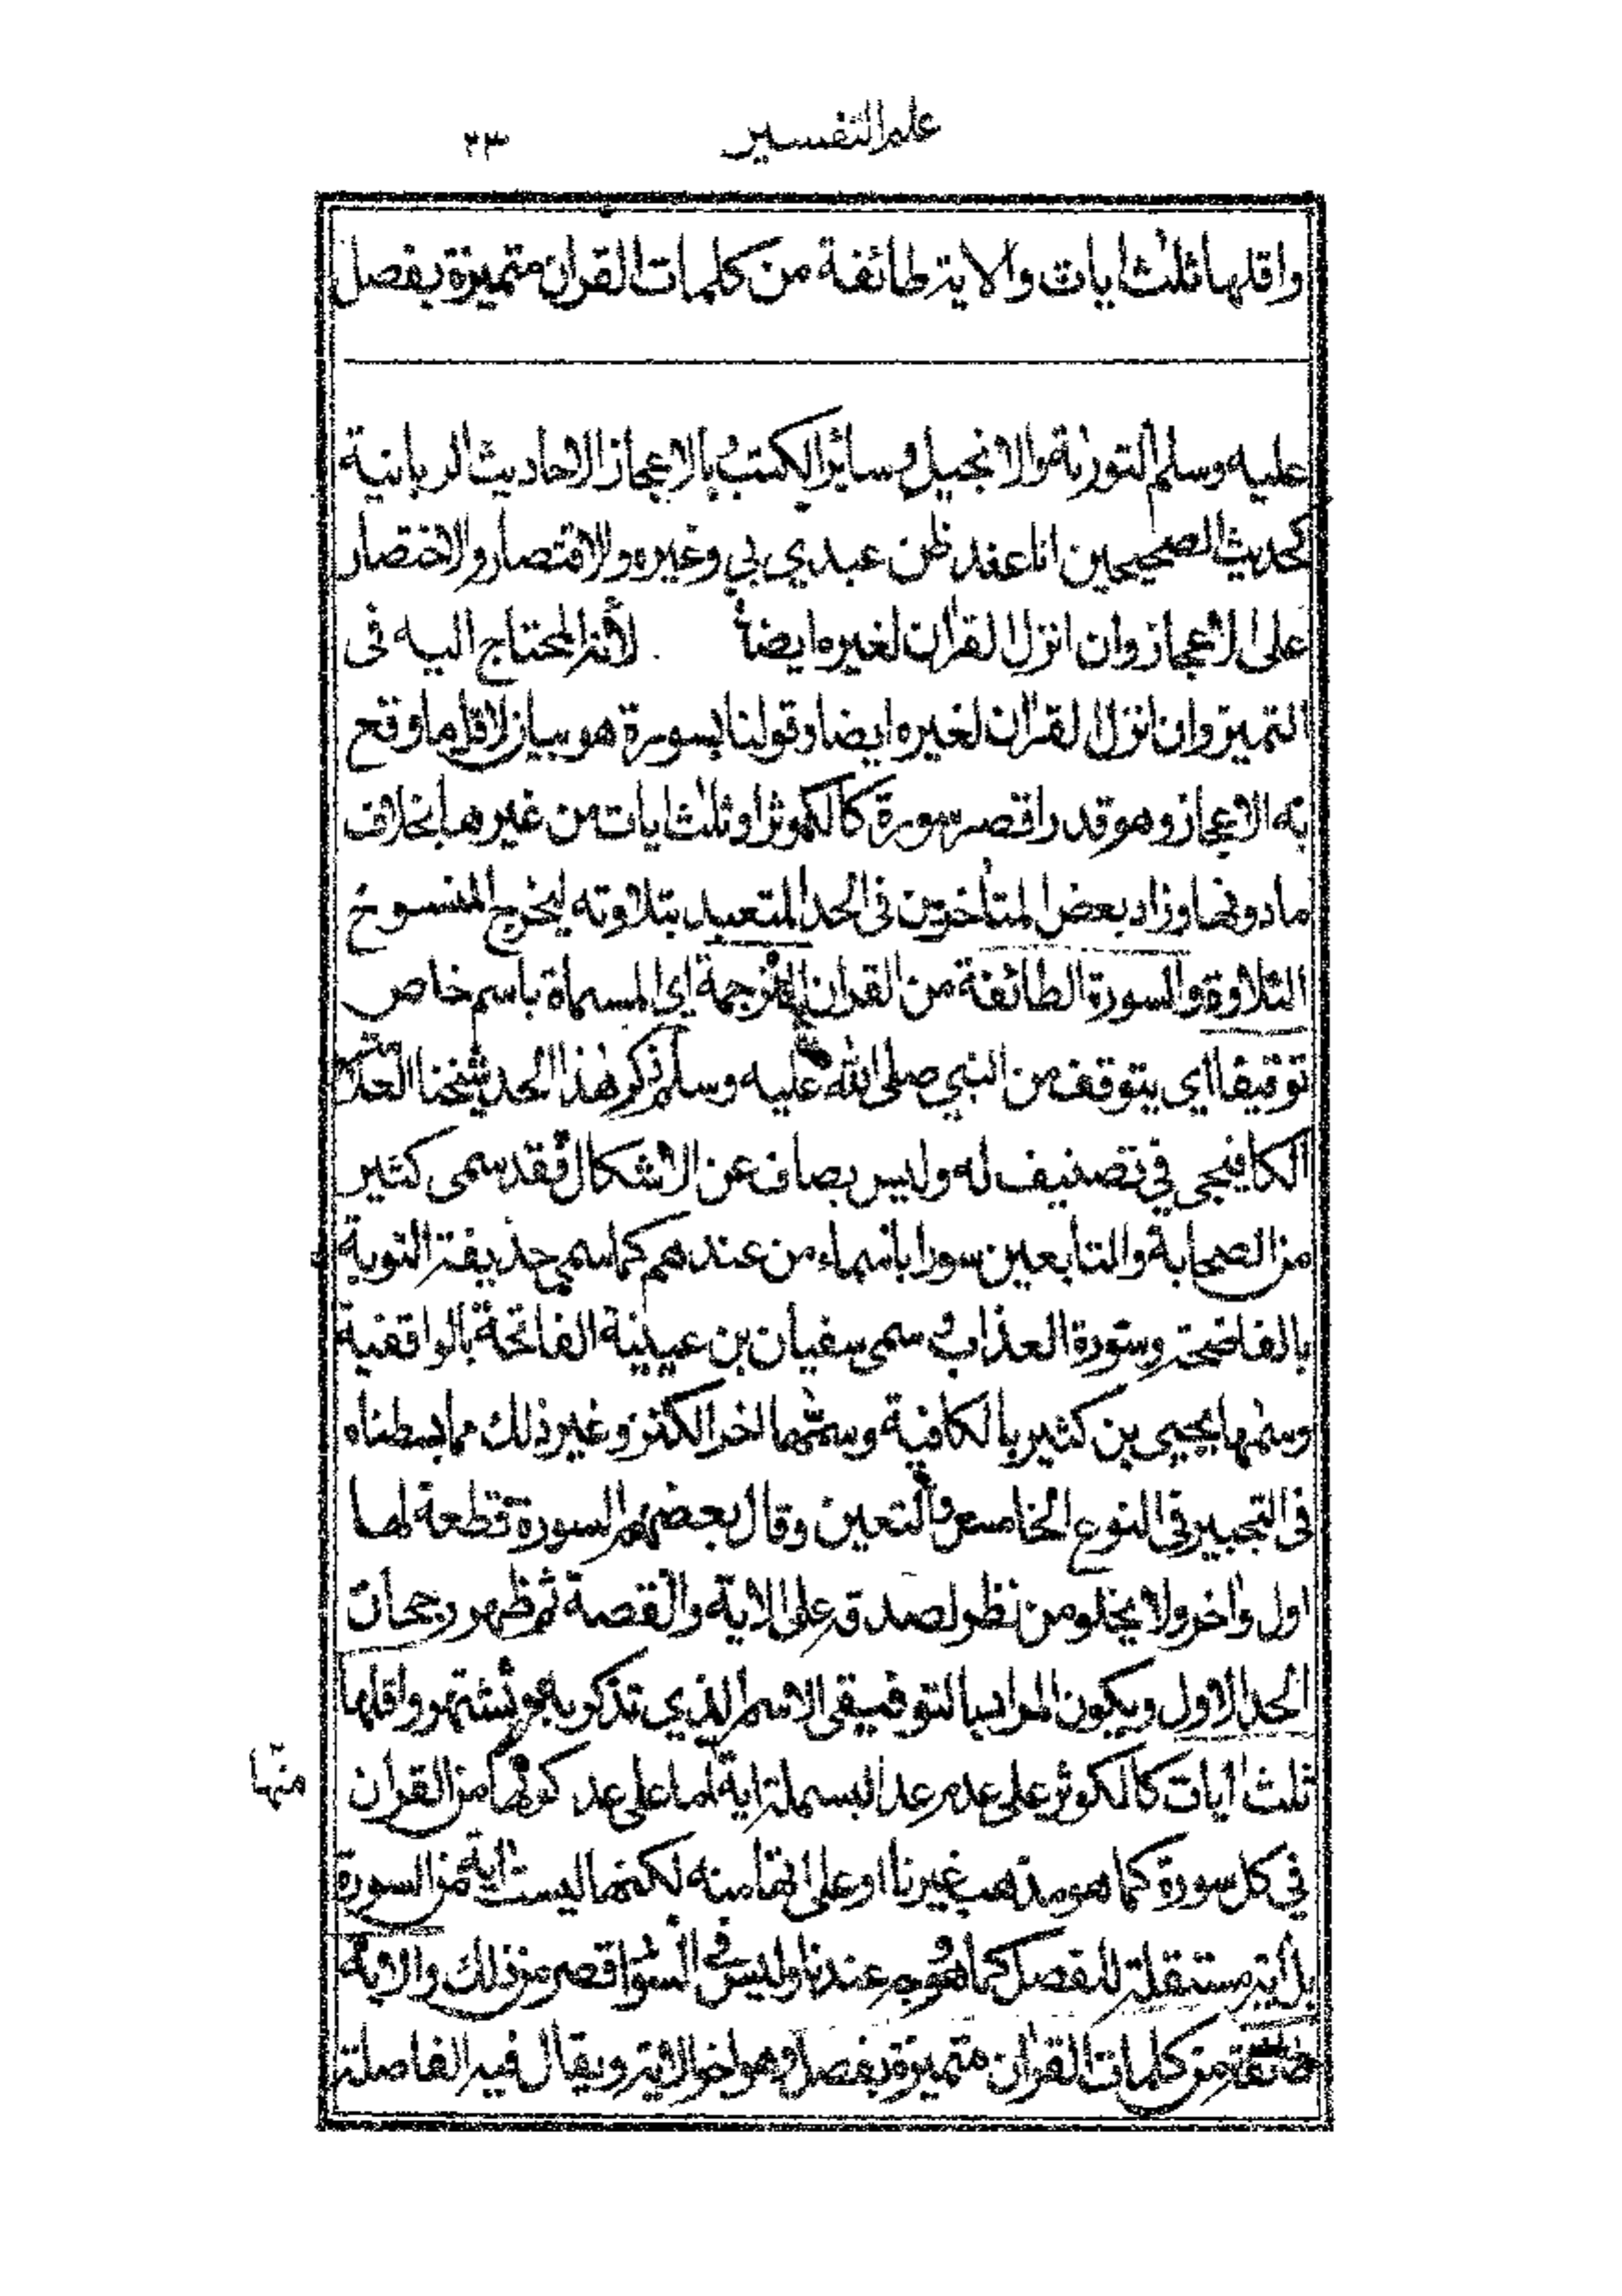 علم التفسير ٢٣
واقلها ثلث ايات والاية طائفة من كلمات القران متميزة بفصل
عليه وسلم التورىة والانجيل وسائر الكتب وبالاعجاز الاحاديث الربانية
كحديث الصحيحين انا عند ظن عبدي بي وغيره والاقتصار والاختصار
على الاعجاز وان انزل القران لغيره ايضا لأنه المحتاج اليه فى
التميز وان انزل القران لغيره ايضا وقولنا بسورة هو بيان لاقل ما وقع
به الاعجاز وهو قدر اقصر سورة كالكوثر او ثلث ايات من غيرها بخلاف
ما دونها وزاد بعض المتأخرين فى الحد المتعبد بتلاوته ليخرج المنسوخ
التلاوة والسورة الطائفة من القران المترجمة اي المسماة باسم خاص
توقيفا اي يتوقف من النبي صلى الله عليه وسلم ذكر هذا الحد شيخنا العلامة
الكافيجي في تصنيف له وليس بصاف عن الاشكال فقد سمى كثير
من الصحابة والتابعين سورا باسماء من عندهم كما سمى حذيفة التوبة
بالفاضحة وسورة العذاب وسمى سفيان بن عيينة الفاتحة بالواقفية
وسمها يحيى بن كثير بالكافية وسمٰها اخر الكنز وغير ذلك مما بسطناه
فى التحبير فى النوع الخامس والتسعين وقال بعضهم السورة قطعة لها
اول واخر ولا يخلو من نظر لصدقه على الاية والقصة ثم ظهر رجحان
الحد الاول ويكون المراد بالتوقيفى الاسم الذي تذكر به وتشتهر واقلها
ثلث ايات كالكوثر على عدم عد البسملة اية اما على عد كونها من القران
منها
في كل سورة كما هو مذهب غيرنا او على انها منه لكنها ليست اية من السورة
بل اية مستقلة للفصل كما هو وجه عندنا وليس في السور اقصر من ذلك والاية
طائفة من كلمات القران متميزة بفصل وهو اخر الاية ويقال فيه الفاصلة